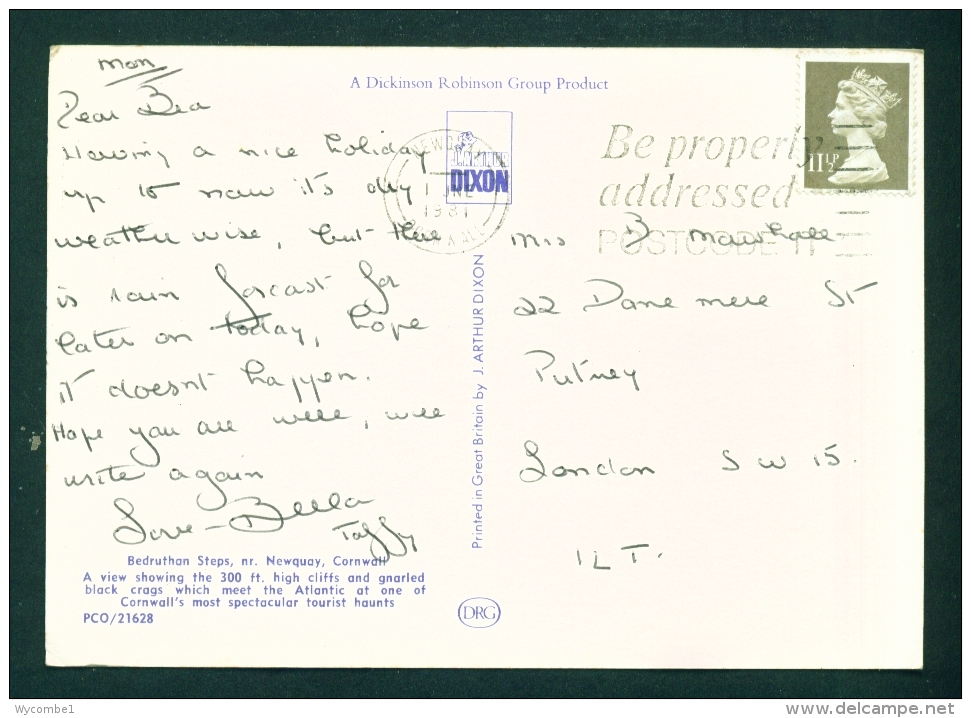 mon
Dear Bea
Having a nice holiday
up to now it's dry
weather wise, but there
is rain forcast for
later on today, hope
it doesnt happen.
Hope you are well, will
write again
Love - Beela
Taffy
Bedruthan Steps, nr. Newquay, Cornwall
A view showing the 300 ft. high cliffs and gnarled
black crags which meet the Atlantic at one of
Cornwall's most spectacular tourist haunts
PCO/21628
A Dickinson Robinson Group Product
DIXON
1981
Printed in Great Britain by J. ARTHUR DIXON
DRG
Be properly
addressed
POSTCODE IT
11½P
Mrs B
22 Dane mere St
Putney
London SW15.
1LT.
Wycombe1
www.delcampe.net